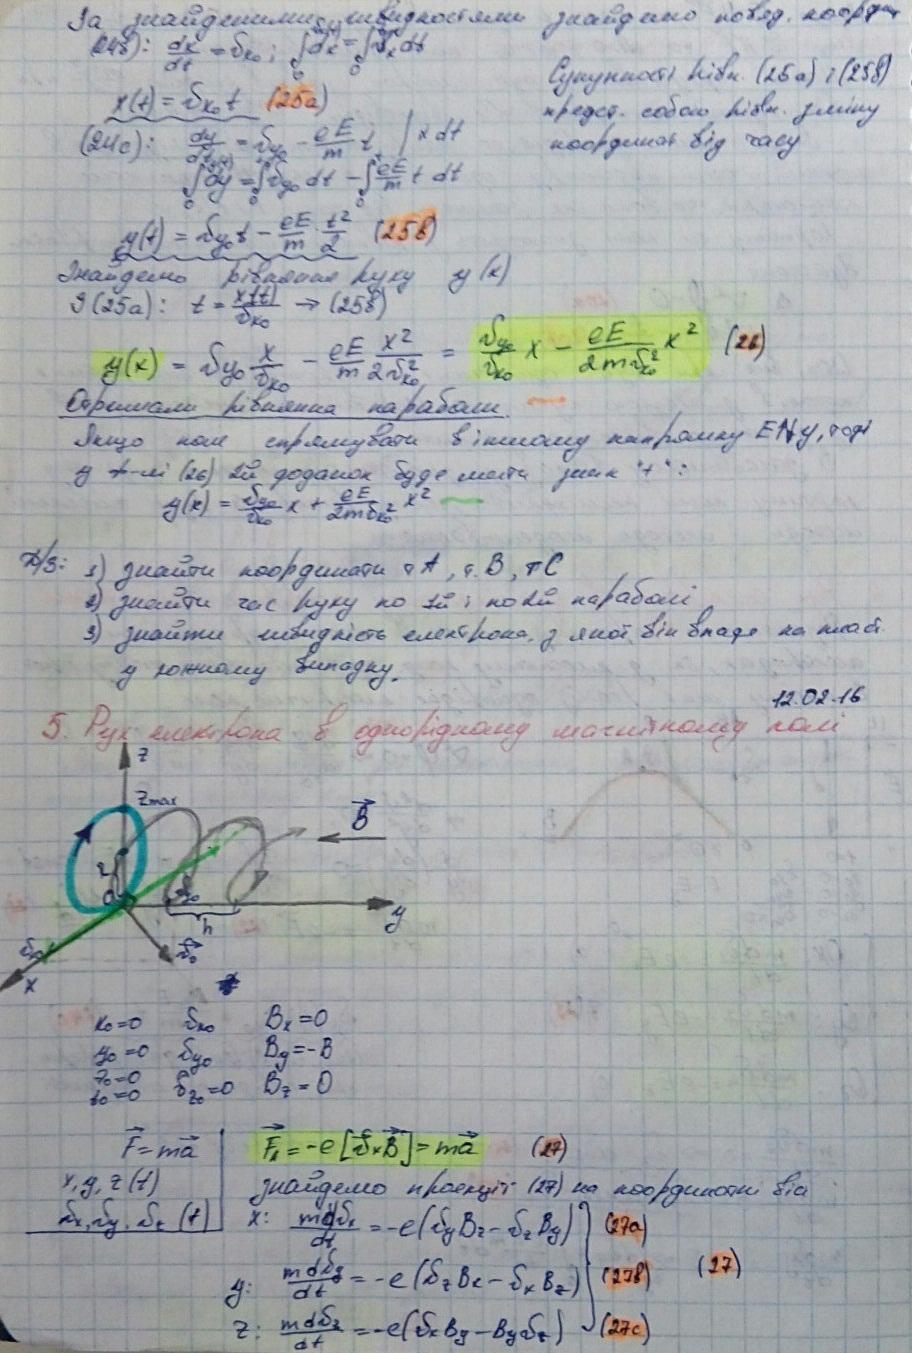 За знайденими швидкостями знайдемо
(24в): dx/dt = υx₀ ; ∫dx = ∫υx dt
x(t) = υx₀ t (25а)
Сукупності рівн. (25а) і (25в)
предст. собою рівн. зміни
координат від часу
(24с): dy/dt = υy₀ − eE/m t | × dt
∫dy = ∫υy₀ dt − ∫eE/m t dt
y(t) = υy₀ t − eE/m · t²/2 (25в)
Знайдемо рівняння руху y(x)
З (25а): t = x(t)/υx₀ → (25в)
y(x) = υy₀ x/υx₀ − eE/m x²/2υx₀² = υy₀/υx₀ x − eE/2mυx₀² x² (26)
Отримали рівняння параболи.
Якщо поле спрямувати в іншому напрямку E↑↓y, тоді
у ф-лі (26) 2й доданок буде мати знак "+":
y(x) = υy₀/υx₀ x + eE/2mυx₀² x²
Д/з: 1) знайти координати т A, т. B, т C
2) знайти час руху по 1й і по 2й параболі
3) знайти швидкість електрона, з якої він впаде на пласт.
у кожному випадку.
12.02.16
5. Рух електрона в однорідному магнітному полі
z
zmax
B⃗
y
h
υ⃗₀
x
x₀=0 υx₀ Bx=0
y₀=0 υy₀ By=−B
z₀=0
t₀=0 υz₀=0 Bz=0
F⃗=ma⃗
F⃗л = −e[υ⃗×B⃗] = ma⃗ (27)
x, y, z (t)
знайдемо проекції (27) на координатні вісі
υx, υy, υz (t)
x: mdυx/dt = −e(υyBz − υzBy) (27а)
y: mdυy/dt = −e(υzBx − υxBz) (27в) (27)
z: mdυz/dt = −e(υxBy − Byυz) (27с)